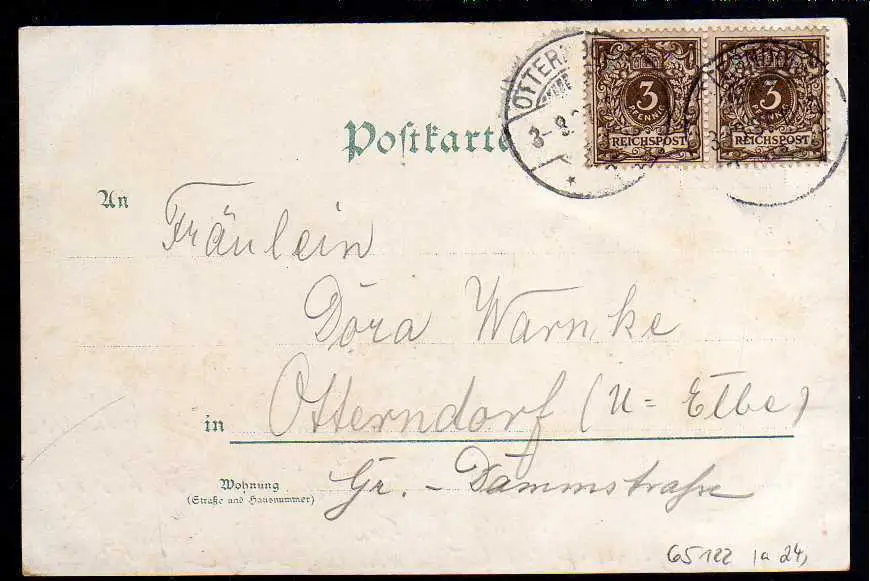 OTTERNDORF
3-9
3 3
PFENNIG PFENNIG
REICHSPOST REICHSPOST
Postkarte
An
Fräulein
Döra Warnke
in Otterndorf (U=Elbe)
Wohnung
(Straße und Hausnummer)
Gr. - Dammstraße
65122 1a 24,